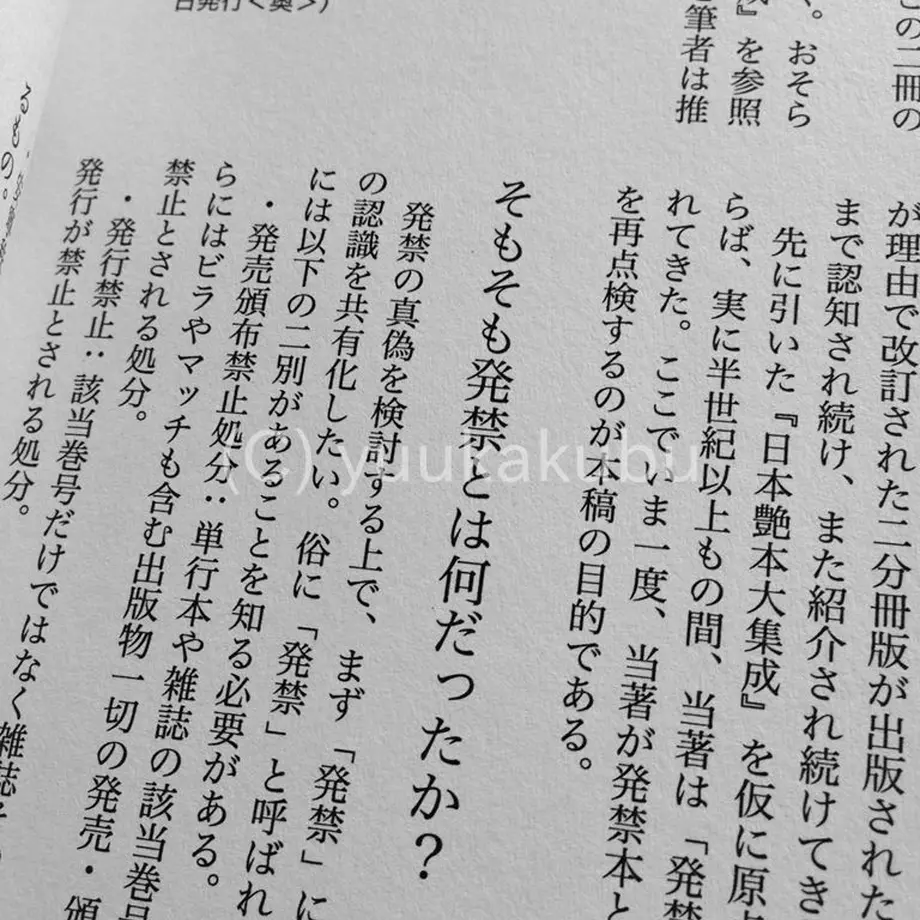 この二冊の
く。おそら
』を参照
筆者は推
日発行<奥>)
が理由で改訂された二分冊版が出版された
まで認知され続け、また紹介され続けてき
先に引いた『日本艶本大集成』を仮に原
らば、実に半世紀以上もの間、当著は「発禁
れてきた。ここでいま一度、当著が発禁本と
を再点検するのが本稿の目的である。
そもそも発禁とは何だったか?
発禁の真偽を検討する上で、まず「発禁」に
の認識を共有化したい。俗に「発禁」と呼ばれ
には以下の二別があることを知る必要がある。
・発売頒布禁止処分:単行本や雑誌の該当巻号
らにはビラやマッチも含む出版物一切の発売・頒
禁止とされる処分。
・発行禁止:該当巻号だけではなく雑誌
発行が禁止とされる処分。
るもの。
(C) yuukakubu